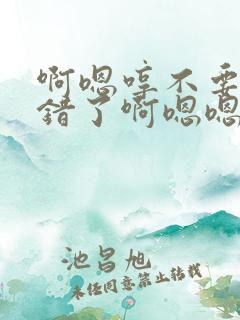 啊嗯哼不要
错了啊嗯嗯
池昌旭
未经同意禁止转载